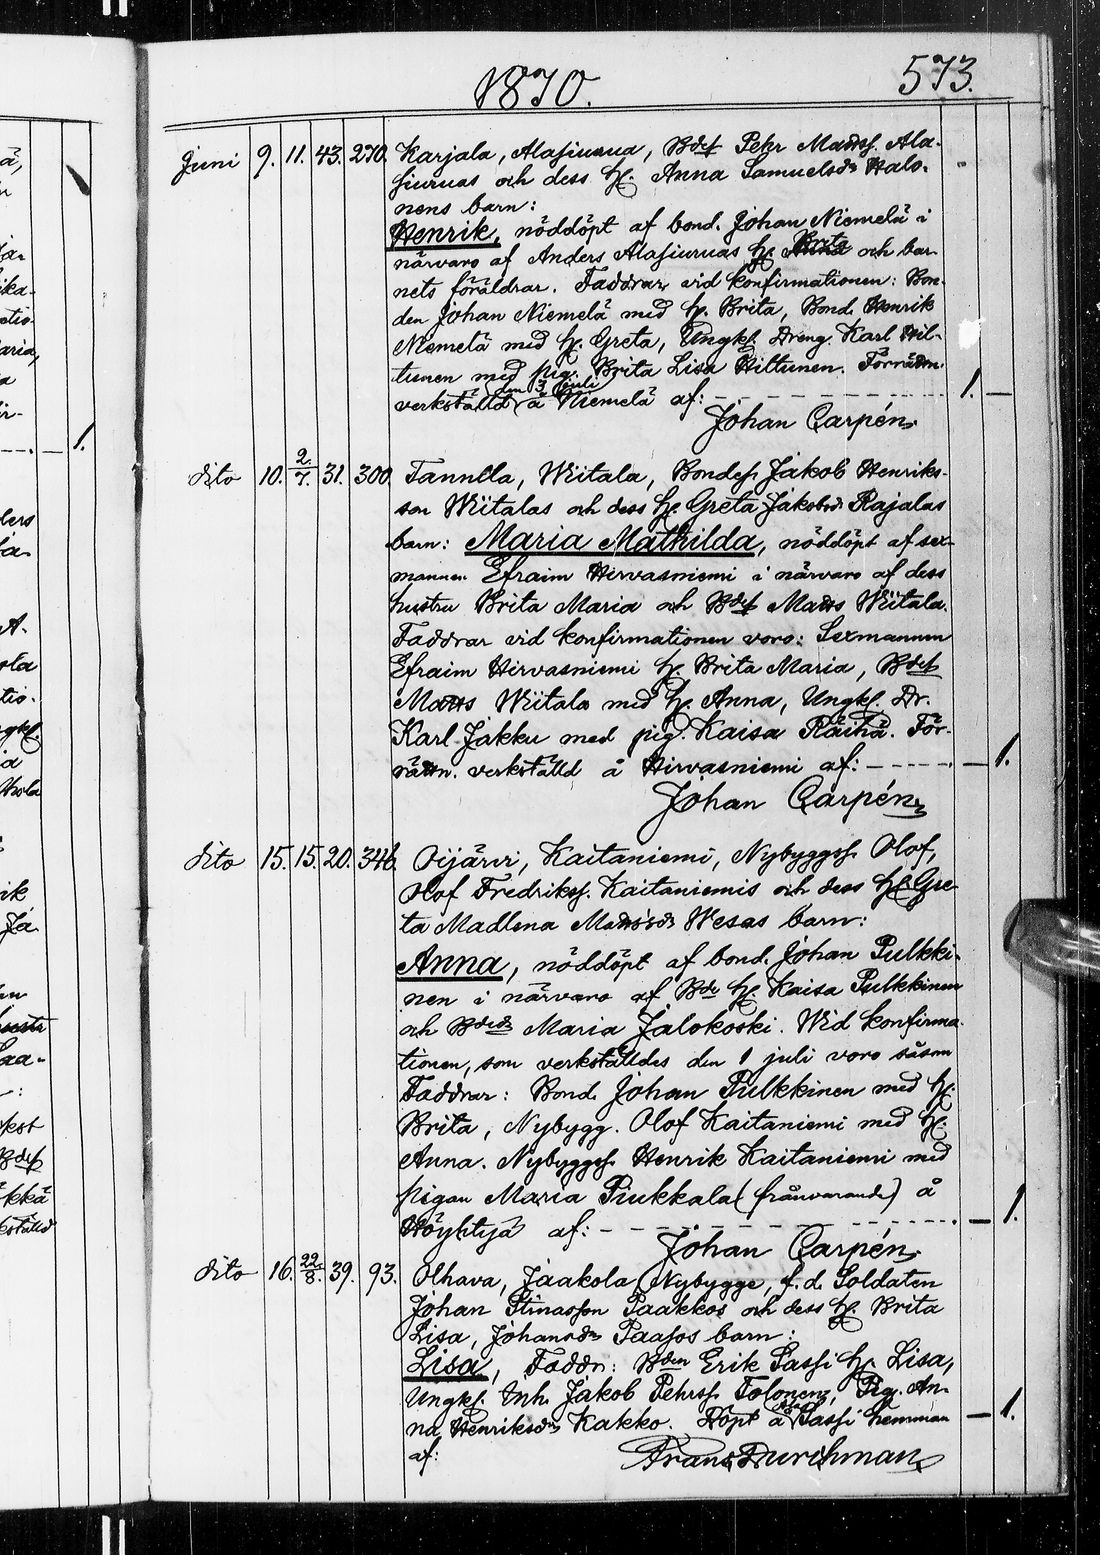 1870. 573.
Juni 9. 11. 43. 270. Karjala, Alasiurua, Bdes Pehr Matss. Ala-
siuruas och dess h. Anna Samuelsdr Halo-
nens barn:
Henrik, nöddöpt af bond. Johan Niemelä i
närvaro af Anders Alasiuruas h. Brita och bar-
nets föräldrar. Faddrar vid konfirmationen: Bon-
den Johan Niemelä med h. Brita, Bond. Henrik
Niemelä med h. Greta, Ungk. Dreng. Karl Hil-
tunen med pig. Brita Lisa Hiltunen. Förrättn.
verkställd den 3 juli å Niemelä af: 1.
Johan Carpén.
dito 10. 2/7. 31. 300. Tannila, Wiitala, Bondes. Jakob Henriks-
son Wiitalas och dess h. Greta Jakobsd. Rajalas
barn: Maria Mathilda, nöddöpt af sex-
mannen Efraim Hirvasniemi i närvaro af dess
hustru Brita Maria och Bdes Matts Wiitala.
Faddrar vid konfirmationen voro: Sexmannen
Efraim Hirvasniemi h. Brita Maria, Bdes
Matts Wiitala med h. Anna, Ungk. Dr.
Karl Jakku med pig. Kaisa Räihä. För-
rättn. verkställd å Hirvasniemi af: 1.
Johan Carpén
dito 15. 15. 20. 346. Oijärvi, Kaitaniemi, Nybyggss. Olof,
Olof Fredrikss. Kaitaniemis och dess h. Gre-
ta Madlena Mattsdr Wesas barn:
Anna, nöddöpt af bond. Johan Pulkki-
nen i närvaro af Bde h. Kaisa Pulkkinen
och Bdedr Maria Jalokoski. Wid konfirma-
tionen, som verkställdes den 1 juli voro såsom
Faddrar: Bond. Johan Pulkkinen med h.
Brita, Nybygg. Olof Kaitaniemi med h.
Anna. Nybyggss. Henrik Kaitaniemi med
pigan Maria Piukkala (frånvarande) å
Höyhtyä af: 1.
Johan Carpén.
dito 16. 22/8. 39. 93. Olhava, Jaakola Nybygge, f.d. Soldaten
Johan Stinasson Paakkos och dess h. Brita
Lisa, Johansdr Paasos barn:
Lisa, Faddr: Bden Erik Sassi h. Lisa,
Ungk. Inh. Jakob Pehrss. Tolonen, Pig. An-
na Henriksdr Kakko. Döpt å Sassi hemman 1.
af: Frans Durchman